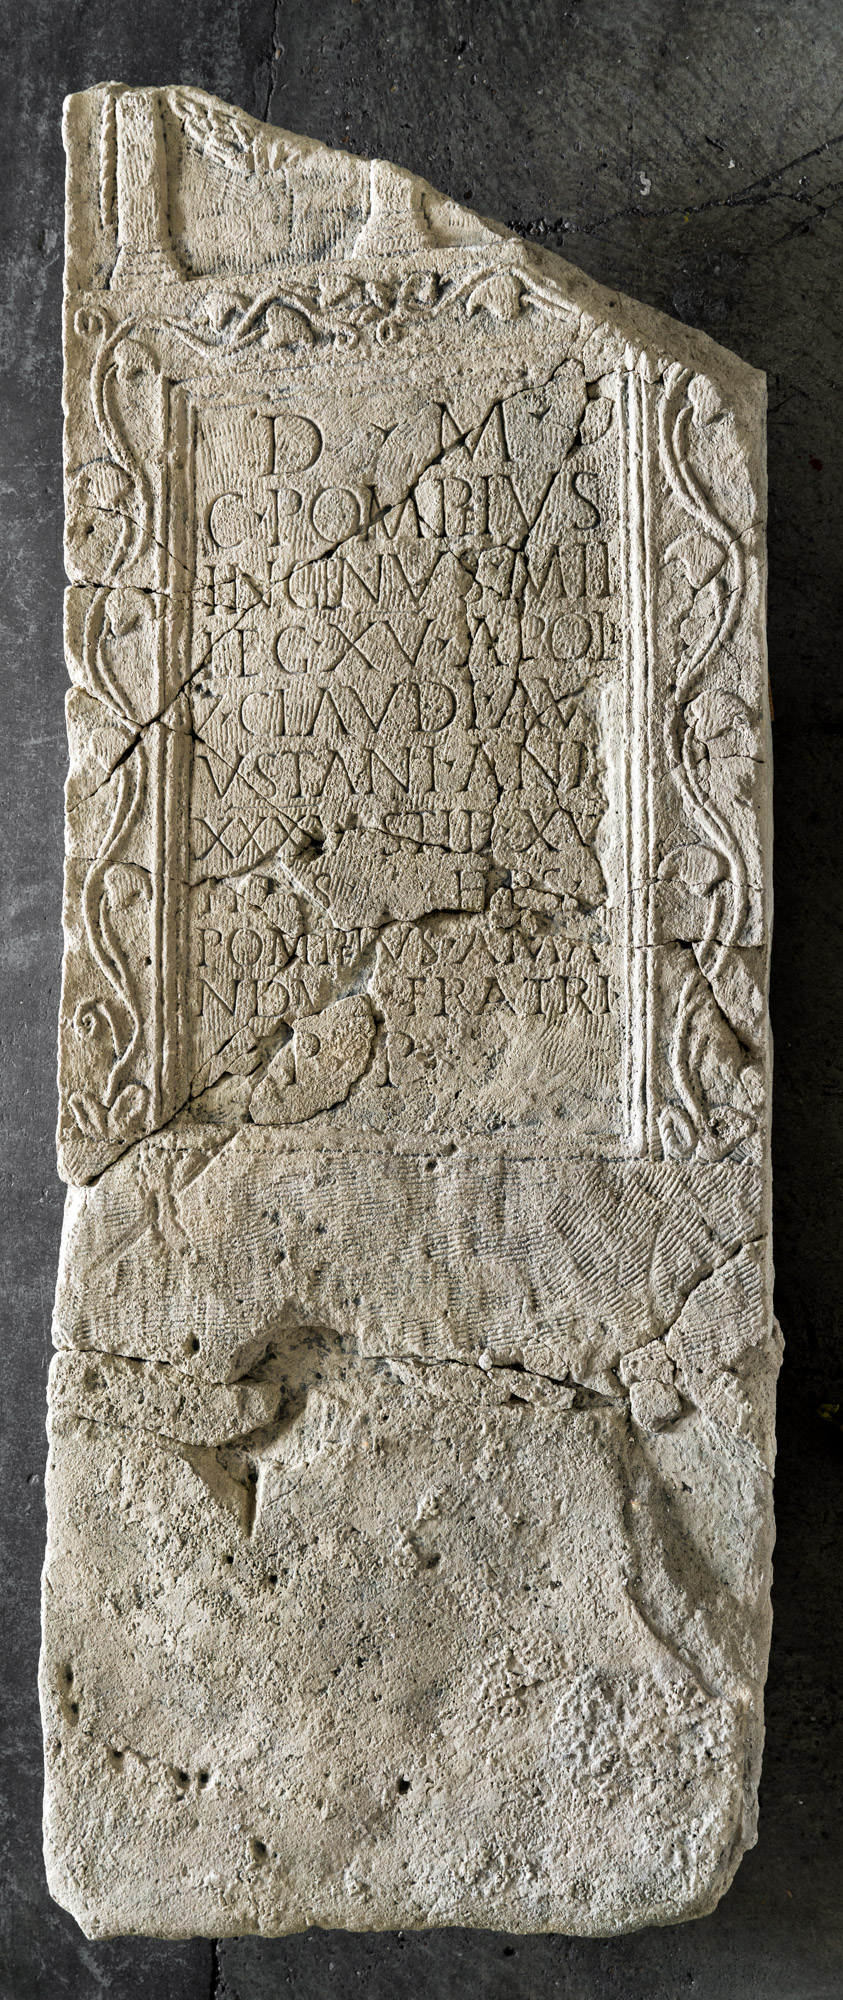 D · M ·
C · POMPIVS
INGINVS · MIL
LEG · XV · APOL
CLAVDI · AX
VSTANI · ANN
XXXV STIP XV
H S E
POMPEIVS · AMA
NDV FRATRI
P P